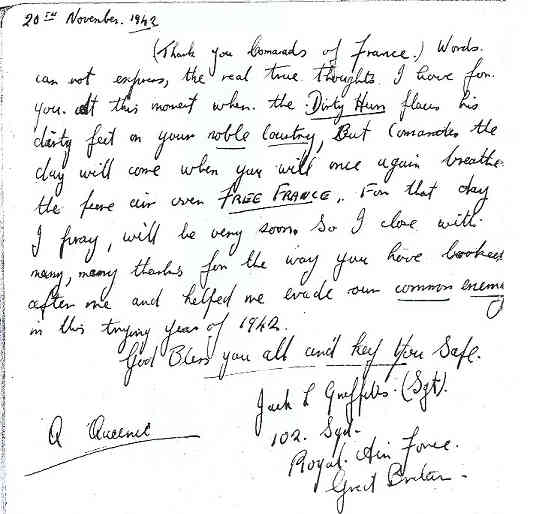 20TH November. 1942
(Thank you Comrads of France.) Words.
can not express, the real true thoughts I have for
you. At this moment when. the Dirty Hun flaws his
dirty feet on your noble Country, But Comrades the
day will come when you will once again breathe
the pure air over FREE FRANCE,. For that day
I pray, will be very soon. So I close with
many, many thanks for the way you have looked
after me and helped me evade our common enemy
in this trying year of 1942.
God Bless you all and kep you Safe.
Jack L Griffiths. (Sgt).
102. Sqd.
Royal Air Force.
Great Britain.